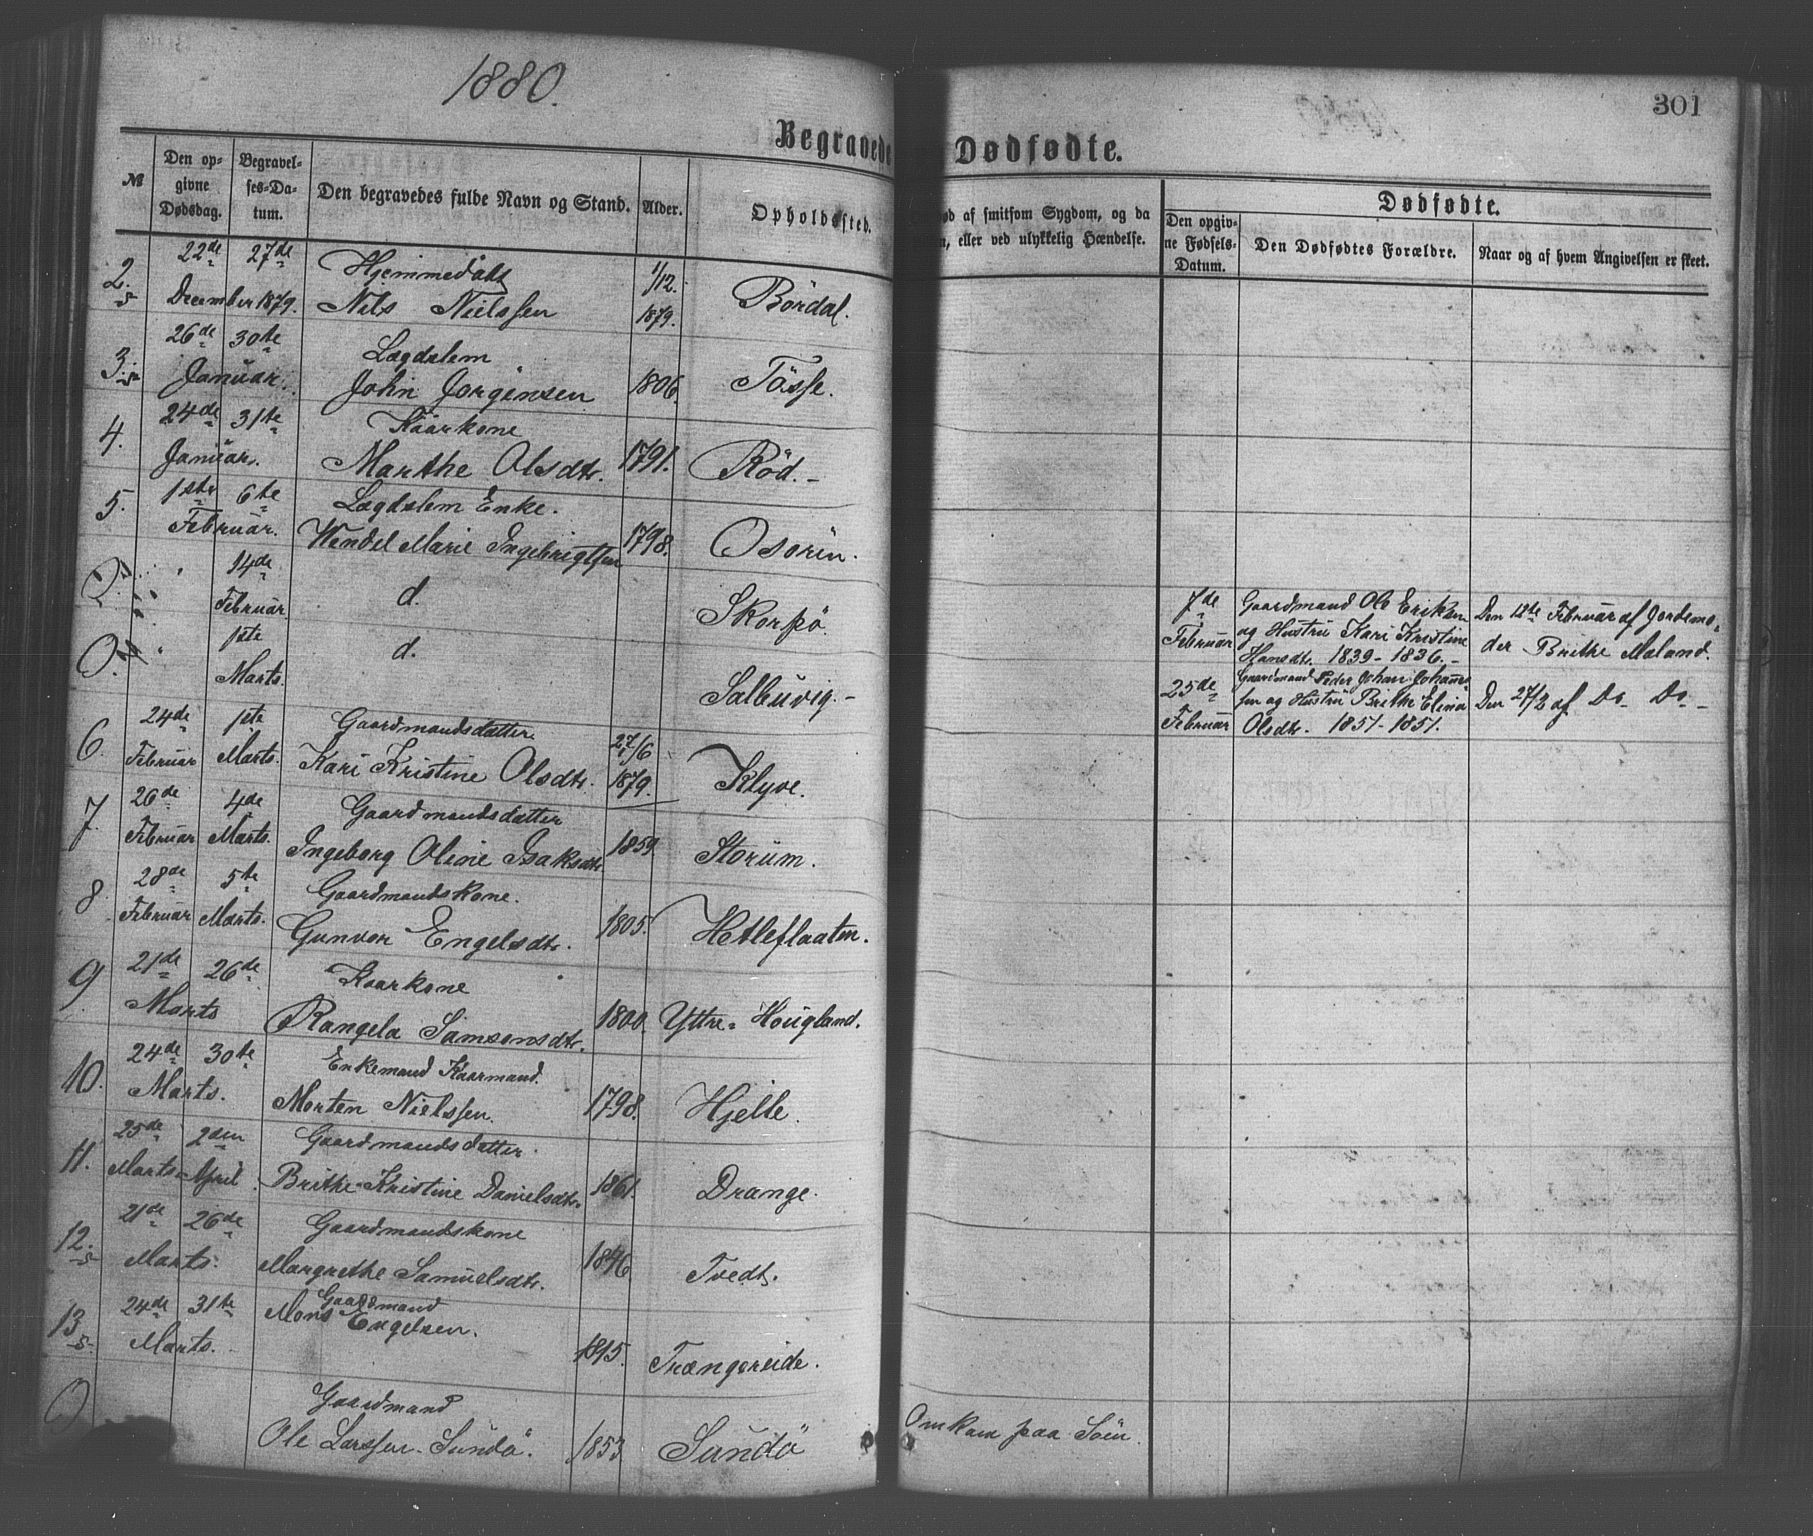 1880.
301
Begravede
Dødfødte.
№
Den op-
givne
Dødsdag.
Begravel-
ses-Da-
tum.
Den begravedes fulde Navn og Stand.
Alder.
Opholdssted.
ød af smitsom Sygdom, og da
n, eller ved ulykkelig Hændelse.
Dødfødte.
Den opgiv-
ne Fødsels-
Datum.
Den Dødfødtes Forældre.
Naar og af hvem Angivelsen er skeet.
22de 27de Hjemmedøbt 1/12.
2. December 1879. Nils Nielssen 1879. Bördal.
26de 30te Lægdslem
3. Januar. John Jørgensen 1806. Tösse.
24de 31te Kaarkone
4. Januar. Marthe Olsdtr. 1791. Röd.-
1ste 6te Lægdslem Enke.
5. Februar. Wendel Marie Ingebrigtsen 1798. Osören.
14de
Februar. d. Skorpö.
7de Gaardmand Ole Eriksen
Februar og Hustru Kari Kristine
Hansdtr. 1839-1836.-
Den 12te Februar af Jordemo-
der Brithe Moland.
1ste
Marts. d. Salbuvig.-
25de Gaardmand Peder Johan Johann-
Februar sen og Hustru Brithe Elina
Olsdtr. 1851-1851.
Den 27/2 af Do. Do.-
24de 1ste Gaardmandsdatter 27/6
6. Februar Marts. Kari Kristine Olsdtr. 1879. Klyve.
26de 4de Gaardmandsdatter
7. Februar Marts. Ingeborg Oline Isaksdtr. 1859 Storum.
28de 5te Gaardmandskone.
8. Februar Marts. Gunvor Engelsdtr. 1805. Hetleflaaten.
21de 26de Kaarkone
9. Marts Rangela Samsonsdtr. 1800. Yttre-Hougland.
24de 30te Enkemand Kaarmand.
10. Marts. Morten Nielssen. 1798. Hjelle.
25de 2den Gaardmandsdatter
11. Marts April. Brithe Kristine Danielsdtr. 1861. Drange.
21de 26de Gaardmandskone
12. Marts. Margrethe Samuelsdtr. 1846. Tvedt.
24de 31te Gaardmand
13 Marts. Mons Engelsen. 1815. Trængereide.
Gaardmand
0 Ole Larssen Sundö. 1853 Sundö
Omkom paa Söen.